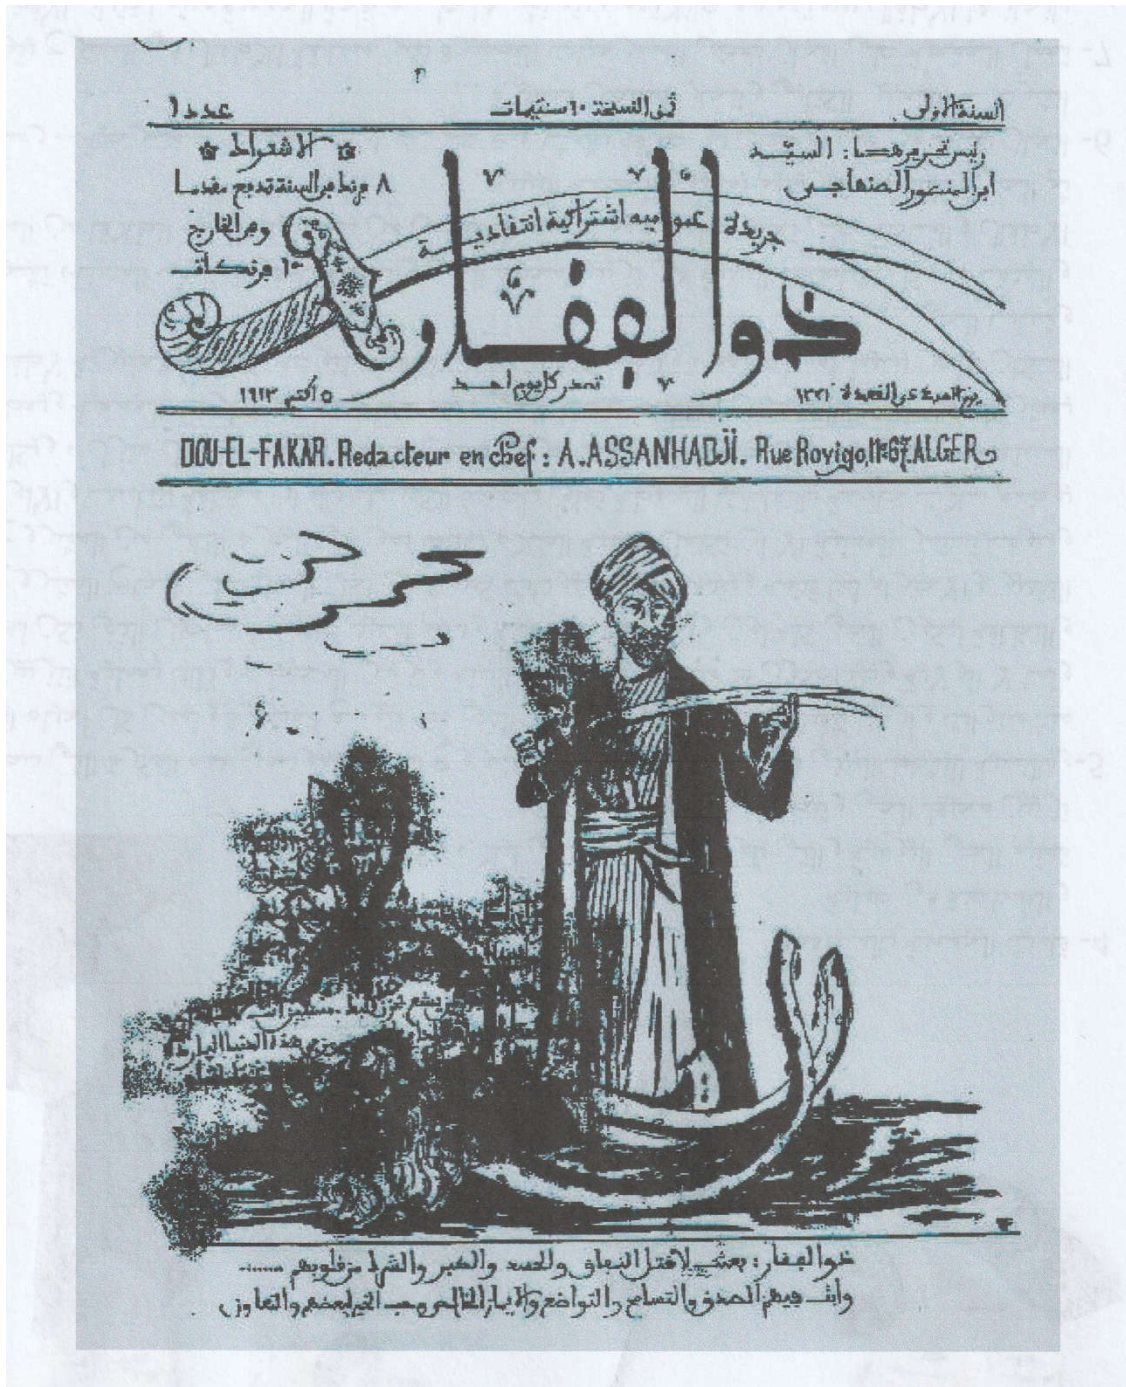 السنة الاولى ثمن النسخة ١٠ سنتيمات عدد ١
رئيس تحريرها : السيد
ابن المنصور الصنهاجي
الاشتراك
٨ فرنك في السنة تدفع مقدما
وفي الخارج
١٠ فرنكات
جريدة عمومية اشتراكية انتقادية
ذو الفقار
تصدر كل يوم احد
ذي القعدة ١٣٣١
٥ أكتبر ١٩١٣
DOU-EL-FAKAR. Redacteur en chef : A. ASSANHADJI. Rue Rovigo, Nº 67. ALGER
هذه الدنيا
ذو الفقار : بعثت لاقتل النفاق والحسد والكبر والشره من قلوبهم ......
وابث فيهم الصدق والتسامح والتواضع والخالص وحب الخير لبعضهم والتعاون